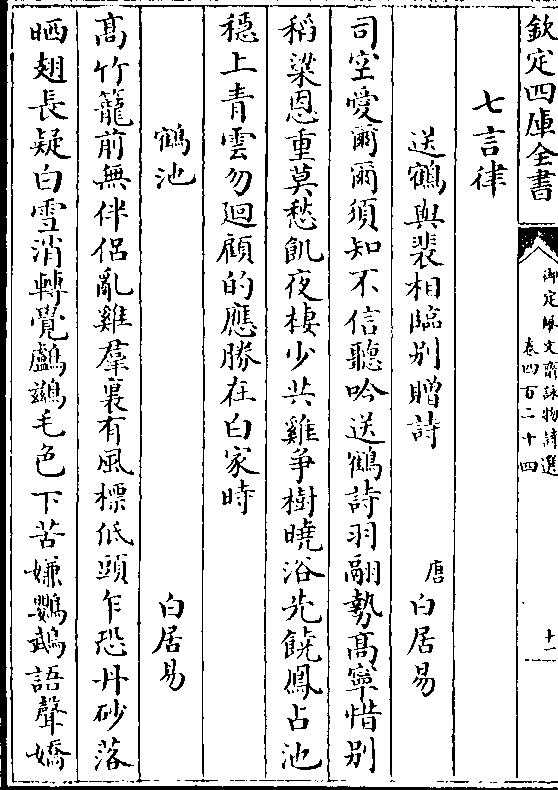 欽定四庫全書
御定佩文齋詠物詩選
卷四百二十四
十一
七言律
送鶴與裴相臨別贈詩　唐　白居易
司空愛爾爾須知不信聽吟送鶴詩羽翮勢高寧惜別
稻粱恩重莫愁飢夜棲少共雞爭樹曉浴先饒鳳占池
穩上青雲勿廻顧的應勝在白家時
鶴池　白居易
髙竹籠前無伴侣亂雞羣裏有風標低頭乍恐丹砂落
晒翅長疑白雪消轉覺鸕鷀毛色下苦嫌鸚鵡語聲嬌